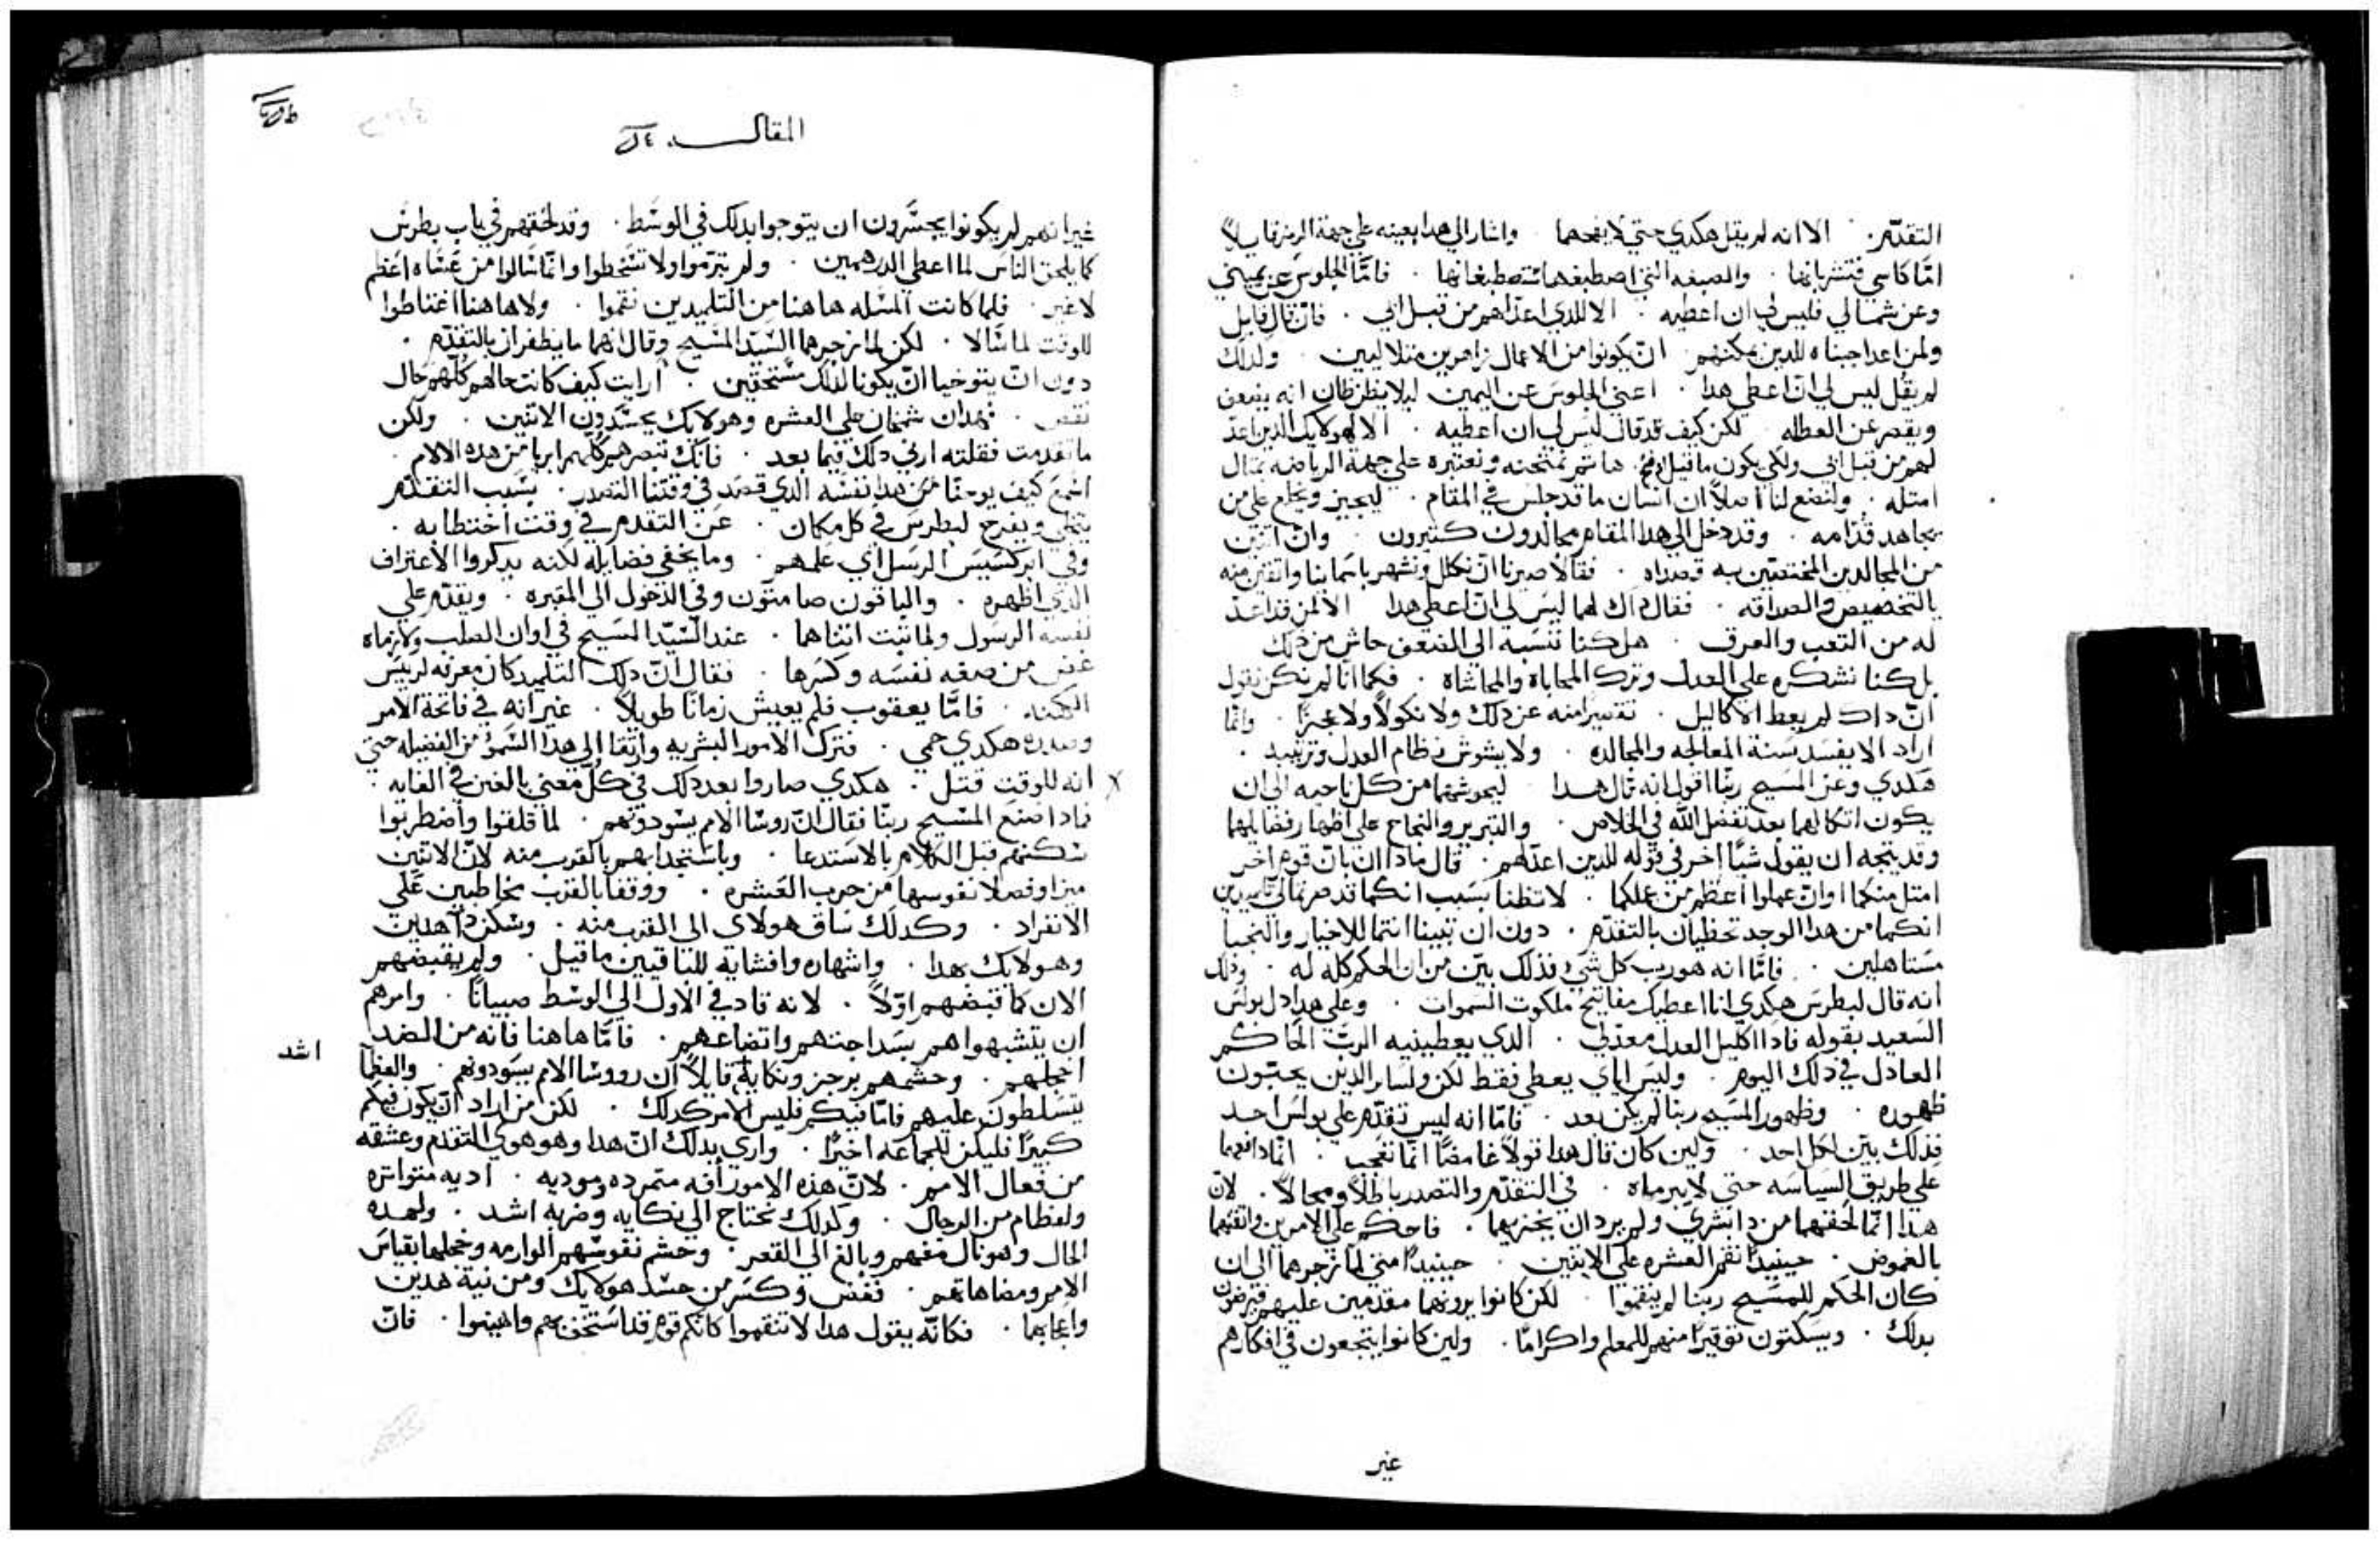 التقدّم ٠ الا انه لم يقل هكدي حتي لا يفجعهما ٠ واشار الي هدا بعينه علي جهة الرمز قايلاً
امّا كاسي فتشربانها ٠ والصبغه التي اصطبغها ستصطبغانها ٠ فامّا الجلوس عن يميني
وعن شمالي فليس لي ان اعطيه ٠ الا للدي اعدّ لهم من قبل ابي ٠ فان قال قايل
ولمن اعد اجبناه للدين يمكنهم ان يكونوا من الاعمال زاهرين متلاليين ٠ ولدلك
لم يقل ليس لي انّ اعطي هدا ٠ اعني الجلوس عن اليمين ليلا يظن ظان انه يضعف
ويقصر عن العطاله لكن كيف قد قال ليس لي ان اعطيه ٠ الا لهولايك الدين اعدّ
لهم من قبل ابي ولكي يكون ما قيل اوضح هاتم نمتحنه ونعتبره علي جهة الرياضه بمثال
امتله ٠ ولنضع لنا اصلاً ان انسان ما قد جلس في المقام ٠ ليجيز ويخلع علي من
يجاهد قدّامه ٠ وقد دخل الي هدا المقام مجالدون كتيرون ٠ وانّ اتنين
من المجالدين المختصّين به قصداه ٠ فقالا صيرنا ان نكلل ونشهر باسماينا واتقين منه
بالتخصيص والصداقه ٠ فقال داك لهما ليس لي انّ اعطي هدا الا لمن قد اعدّ
له من التعب والعرق ٠ هل كنا ننسبه الي الضعف حاش من دلك
بل كنا نشكره علي العدل وترك المحاباة والمحاشاه ٠ فكما انّا لم نكن نقول
انّ داك لم يعط الاكاليل ٠ تقصيراً منه عن دلك ولا نكولاً ولا عجزاً ٠ وانّما
اراد الا يفسد سنة المعالجه والمجالده ٠ ولا يشوش نظام العدل وترتيبه ٠
هكدي وعن المسيح ربّنا اقول انه قال هدا ليحوشهما من كل ناحيه الي ان
يكون اتكالهما بعد تفضل الله في الخلاص ٠ والتبرير والنجاح علي اظهار فضايلهما
وقد يتجه ان يقول شيّاً اخر في قوله للدين اعدّ لهم ٠ قال مادا ان بان قوم اخر
امتل منكما او انّ عملوا اعظم من عملكما ٠ لا تظنا بسبب انكما قد صرتما لي تلميدين
انكما من هدا الوجه تحظيان بالتقدّم ٠ دون ان تبيّنا انتما للاختيار والنجبا
مستاهلين ٠ فامّا انه هو ربّ كل شي فدلك بيّن من ان الحكم كله له ٠ ودلك
انه قال لبطرس هكدي انا اعطيك مفاتيح ملكوت السموات ٠ وعلي هدا دل بولس
السعيد بقوله فادا اكليل العدل معدّ لي ٠ الدي يعطينيه الربّ الحاكم
العادل في دلك اليوم ٠ وليس اياي يعطي فقط لكن ولساير الدين يحبّون
ظهوره ٠ وظهور المسيح ربنا لم يكن بعد ٠ فامّا انه ليس تقدّم علي بولس احد
فدلك بيّن لكل احد ٠ ولين كان قال هدا قولاً غامضاً انّما تعجب ٠ انّما دافعهما
علي طريق السياسه حتي لا يبرماه ٠ في التقدّم والتصدر باطلاً ومحالاً ٠ لانّ
هدا انّما لحقهما من دا بشري ولم يرد ان يحزنهما ٠ فاحكم علي الامرين واتقنهما
بالغموض ٠ حينيداً نقم العشره علي الاتنين ٠ حينيداً متي لما زجرهما الي ان
كان الحكم للمسيح ربّنا لم ينقموا ٠ لكن كانوا يرونهما مقدّمين عليهم فيرضون
بدلك ٠ ويسكتون توقيراً منهم للمعلم واكراماً ٠ ولين كانوا يتجعون في افكارهم
غير
المقالـــه
غير انهم لم يكونوا يجسّرون ان يتوجوا بدلك في الوسط ٠ وقد لحقهم في باب بطرس
كما يلحق الناس لما اعطي الدرهمين ٠ ولم يتبرّموا ولا تسخطوا وانّما سالوا من عساه اعظم
لا غير ٠ فلما كانت المسله هاهنا من التلميدين نقموا ٠ ولا هاهنا اغتاظوا
للوقت لما سالا ٠ لكن لما زجرهما السيّد المسيح وقال انهما ما يظفران بالتقدّم ٠
دون انّ يتوخيا انّ يكونا لدلك مستحقين ٠ ارايت كيف كانت حالهم كلّهم حال
نقص ٠ فهدان شمخان علي العشره وهولايك يحسدون الاتنين ٠ ولكن
ما تقدمت فقلته ارني دلك فيما بعد ٠ فانك تبصرهم كلّهم ابريا من هده الالام ٠
اسمع كيف يوحنّا من هدا نفسه الدي قصد في وقتنا التصدر ٠ بسبب التقدّم
يتخلي ويفرج لبطرس في كل مكان ٠ عن التقدم في وقت اختطابه ٠
وفي ابركسيس الرسل اي علمهم ٠ وما يخفي فضايله لكنه يدكروا الاعتراف
الدي اظهره ٠ والباقون صامتون وفي الدخول الي المقبره ٠ ويقدّم علي
نفسه الرسول ولما ثبت اتناهما ٠ عند السّيّد المسيح في اوان الصلب ولازماه
غض من صفه نفسه وكسرها ٠ فقال انّ دلك التلميد كان معرفه لريّس
الكهنه ٠ فامّا يعقوب فلم يعيش زماناً طويلاً ٠ غير انه في فاتحة الامر
وصدره هكدي حمي ٠ فترك الامور البشريه وارتقا الي هدا السمو من الفضيله حتي
انه للوقت قتل ٠ هكدي صاروا بعد دلك في كلّ معني بالغين في الغايه ٠
فمادا صنع المسيح ربّنا فقال انّ روسا الامم يسودونهم ٠ لما قلقوا واضطربوا
سكنهم قبل الكلام بالاستدعا ٠ وباستجدابهم بالقرب منه لانّ الاتنين
ميزا وفصلا نفوسهما من حرب العشره ٠ ووقفا بالقرب مخاطبين علي
الانفراد ٠ وكدلك ساق هولاي الي القرب منه ٠ وسكن داهدين
وهولايك بهدا ٠ واشهاره وافشايه للباقيين ما قيل ٠ ولم يقبضهم
الان كما قبضهم اوّلاً ٠ لانه قاد في الاول الي الوسط صبياناً ٠ وامرهم
ان يتشبهوا هم بسداجتهم واتضاعهم ٠ فامّا هاهنا فانه من الضد
اشد
اخجلهم ٠ وحشمهم برجز ونكاية قايلاً ان رووسا الامم يسودونهم ٠ والعظما
يتسلطون عليهم فامّا فيكم فليس الامر كدلك ٠ لكن من اراد انّ يكون فيكم
كبيراً فليكن للجماعه اخيراً ٠ واري بدلك انّ هدا وهو هوي التقدم وعشقه
من فعال الامم ٠ لانّ هده الامور افه متمرده موديه ٠ اديه متواتره
ولعظام من الرجال ٠ ولدلك تحتاج الي نكايه وضربه اشد ٠ ولهده
الحال وهو نال منهم وبالغ الي القعر ٠ وحشم نفوسهم الوارمه وخجلها بقياس
الامم ومضاهاتهم ٠ فغض وكسر من حسد هولايك ومن نية هدين
واعجابهما ٠ فكانّه يقول هدا لا تنقموا كانكم قوم قد استخف بهم واهينوا ٠ فانّ